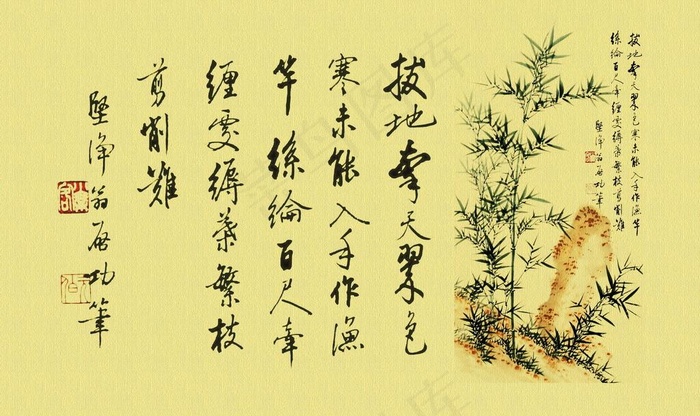 拔地參天翠色寒未能入手作漁竿
絲綸百尺牽纏處縟葉繁枝剪削難
堅淨翁啟功筆
拔地參天翠色
寒未能入手作漁
竿絲綸百尺牽
纏處縟葉繁枝
剪削難
堅淨翁啟功筆